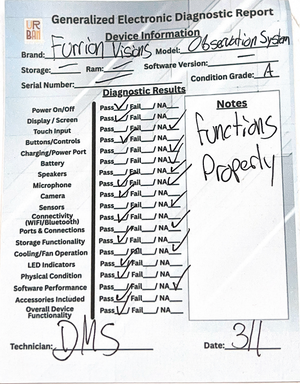 UR
BAN
Generalized Electronic Diagnostic Report
Device Information
Brand: Furrion Visions Model: Observation System
Storage: Ram: Software Version:
Serial Number: Condition Grade: A
Diagnostic Results
Power On/Off Pass✓/ Fail / NA
Display / Screen Pass✓/ Fail / NA
Touch Input Pass / Fail / NA✓
Buttons/Controls Pass✓/ Fail / NA
Charging/Power Port Pass / Fail / NA✓
Battery Pass / Fail / NA✓
Speakers Pass / Fail / NA✓
Microphone Pass / Fail / NA
Camera Pass✓/ Fail / NA
Sensors Pass / Fail / NA
Connectivity (WiFi/Bluetooth) Pass / Fail / NA
Ports & Connections Pass✓/ Fail / NA
Storage Functionality Pass / Fail / NA✓
Cooling/Fan Operation Pass / Fail / NA
LED Indicators Pass / Fail / NA
Physical Condition Pass✓/ Fail / NA
Software Performance Pass / Fail / NA✓
Accessories Included Pass✓/ Fail / NA
Overall Device Functionality Pass✓/ Fail / NA
Notes
Functions
Properly
Technician: DMS Date: 3/1